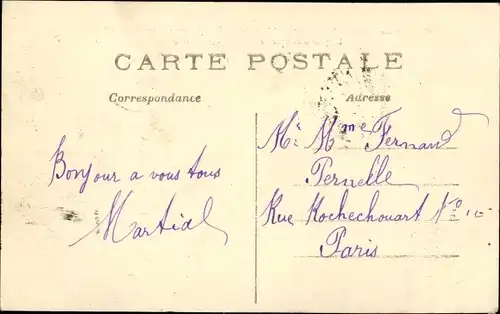 CARTE POSTALE
Correspondance
Adresse
Bonjour a vous tous
Martial
Mr Mme Fernand
Pernelle
Rue Rochechouart No 10
Paris